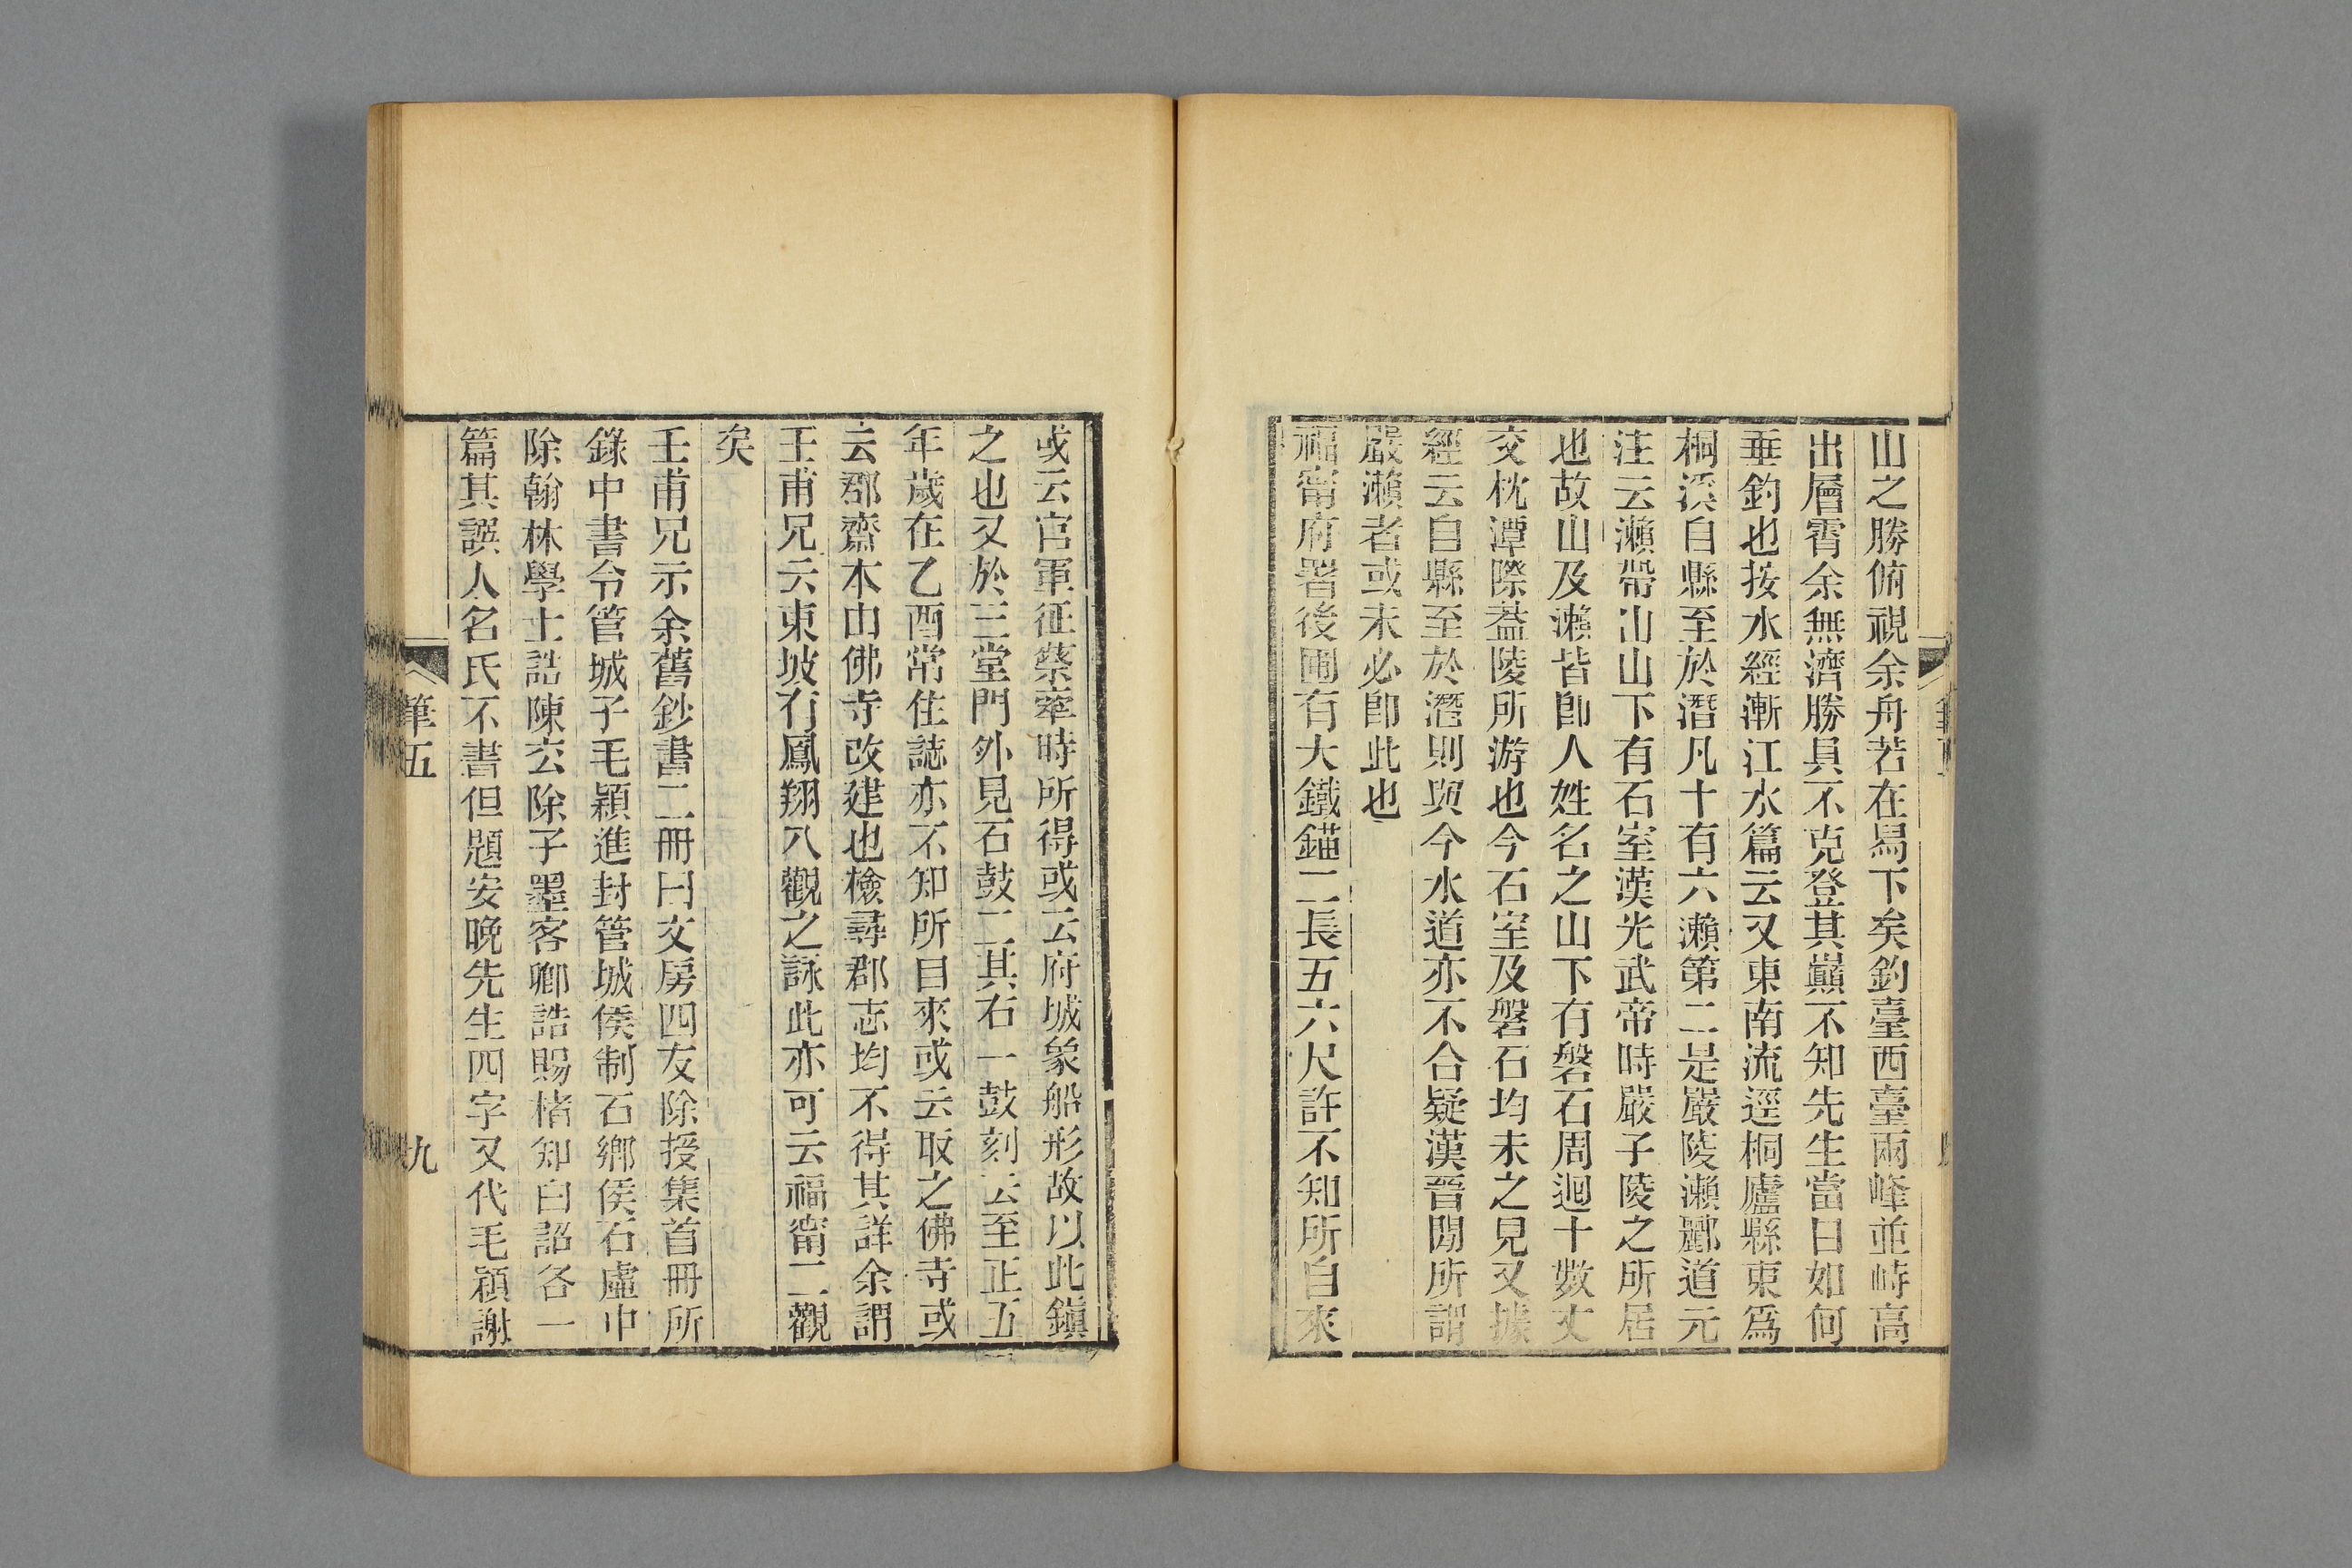 山之勝俯視余舟若在舄下矣釣臺西臺兩峰並峙高
出層霄余無濟勝具不克登其巔不知先生當日如何
垂釣也按水經漸江水篇云又東南流逕桐廬縣東爲
桐溪自縣至於潛凡十有六瀨第二是嚴陵瀨酈道元
注云瀨帶山山下有石室漢光武帝時嚴子陵之所居
也故山及瀨皆卽人姓名之山下有磐石周迴十數丈
交枕潭際葢陵所游也今石室及磐石均未之見又據
經云自縣至於潛則與今水道亦不合疑漢晉閒所謂
嚴瀨者或未必卽此也
福甯府署後圃有大鐵錨二長五六尺許不知所自來
或云官軍征蔡牽時所得或云府城象船形故以此鎭
之也又於三堂門外見石鼓二其右一鼓刻云至正五
年歲在乙酉常住誌亦不知所目來或云取之佛寺或
云郡齋本由佛寺改建也檢尋郡志均不得其詳余謂
壬甫兄云東坡有鳳翔八觀之詠此亦可云福甯二觀
矣
壬甫兄示余舊鈔書二冊曰文房四友除授集首冊所
錄中書令管城子毛穎進封管城侯制石鄕侯石虛中
除翰林學士誥陳玄除子墨客卿誥賜楮知白詔各一
篇其譔人名氏不書但題安晚先生四字又代毛穎謝
筆五
九